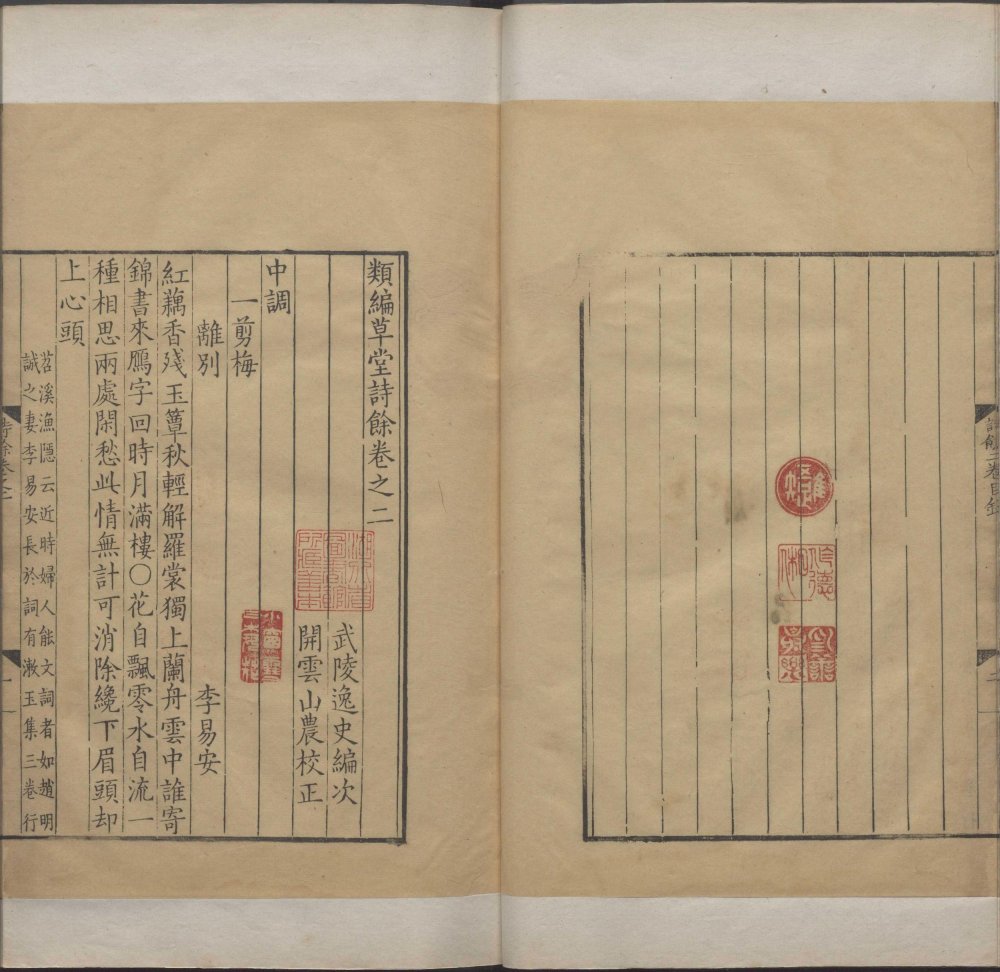 類編草堂詩餘卷之二
武陵逸史編次
開雲山農校正
中調
一剪梅
離別
李易安
紅藕香殘玉簟秋輕解羅裳獨上蘭舟雲中誰寄
錦書來鴈字回時月滿樓〇花自飄零水自流一
種相思兩處閑愁此情無計可消除纔下眉頭却
上心頭
苕溪漁隱云近時婦人能文詞者如趙明
誠之妻李易安長於詞有漱玉集三卷行